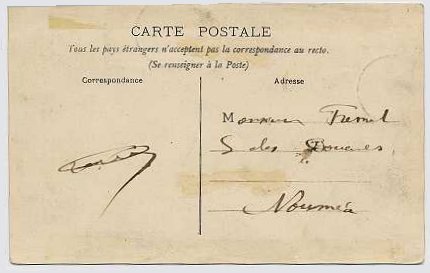 CARTE POSTALE
Tous les pays étrangers n'acceptent pas la correspondance au recto.
(Se renseigner à la Poste)
Correspondance
Adresse
Monsieur
S des Douanes
Nouméa